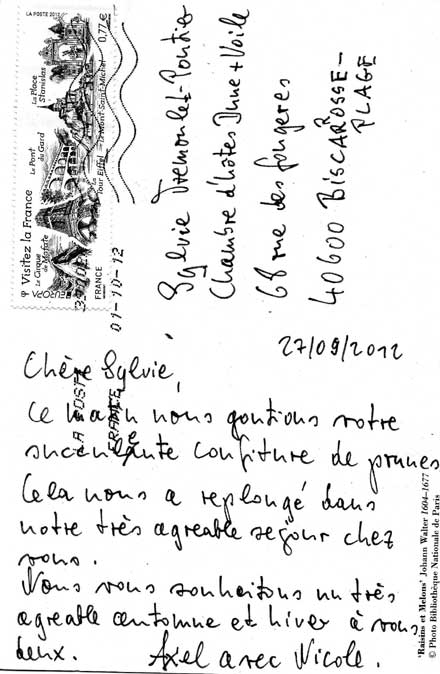 LA POSTE 2012
0,77€
La Place
Stanislas
Le Pont
du Gard
Le Mont-Saint-Michel
La
Tour Eiffel
Visitez la France
Le Cirque
de Mafate
EUROPA
FRANCE
01-10-12
LA POSTE
FRANCE
Sylvie Tremoulet-Pontier
Chambre d'hôtes Dune + Voile
68 rue des fougeres
40600 BISCARROSSE-
PLAGE
27/09/2012
Chère Sylvie,
Ce matin nous goutions votre
succulente confiture de prunes
Cela nous a replongé dans
notre très agreable sejour chez
vous.
Nous vous souhaitons un très
agreable automne et hiver à vous
deux. Axel avec Nicole.
'Raisins et Melons' Johann Walter 1604-1677
© Photo Bibliothèque Nationale de Paris